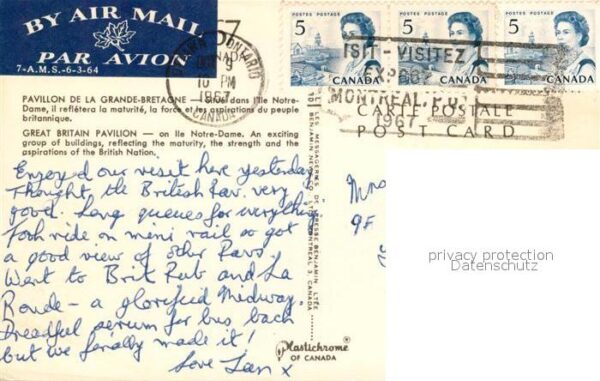 BY AIR MAIL
PAR AVION
7-A.M.S.-6-3-64
ONTARIO
9
10 PM
1967
CANADA
5 POSTES POSTAGE CANADA
5 POSTES POSTAGE CANADA
5 POSTES POSTAGE CANADA
ISIT-VISITEZ
EXPO67
MONTREAL, P.Q.
1967
CARTE POSTALE
POST CARD
PAVILLON DE LA GRANDE-BRETAGNE — Situé dans l'Ile Notre-
Dame, il reflétera la maturité, la force et les aspirations du peuple
britannique.
GREAT BRITAIN PAVILION — on Ile Notre-Dame. An exciting
group of buildings, reflecting the maturity, the strength and the
aspirations of the British Nation.
Enjoyed our visit here yesterday
Thought the British Pav. very
good. Long queues for everythi
Took ride on mini rail so got
a good view of other Pavs.
Went to Brit Pub and La
Ronde – a glorified Midway.
Dreadful for bus back
but we finally made it!
Love x
LES MESSAGERIES DE PRESSE BENJAMIN LTÉE
BENJAMIN NEWS CO. MONTREAL 3, CANADA
Plastichrome
OF CANADA
Mrs
9F
privacy protection
Datenschutz